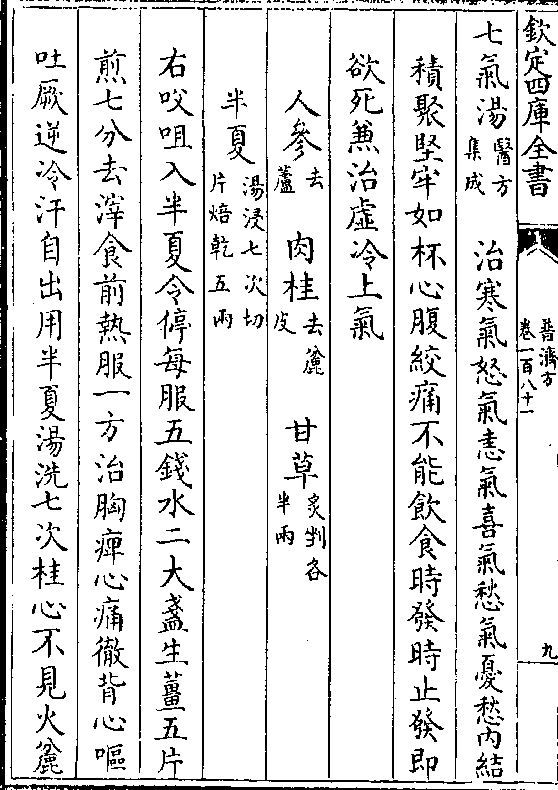 欽定四庫全書
普濟方
卷一百八十一
九
七氣湯醫方集成 治寒氣怒氣恚氣喜氣愁氣憂愁内結
積聚堅牢如杯心腹絞痛不能飲食時發時止發即
欲死兼治虛冷上氣
人參去蘆 肉桂去麄皮 甘草炙剉各半兩
半夏湯浸七次切片焙乾五兩
右㕮咀入半夏令停每服五錢水二大盞生薑五片
煎七分去滓食前熱服一方治胸痺心痛徹背心嘔
吐厥逆冷汗自出用半夏湯洗七次桂心不見火麄